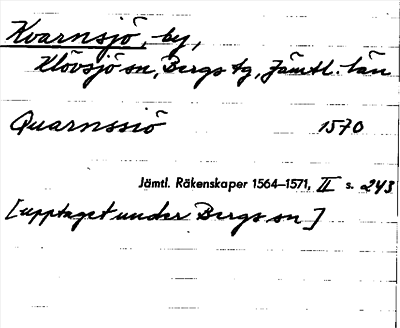 Kvarnsjö, by,
Klövsjö sn, Bergs tg, Jämtl. län
Quarnssiö 1570
Jämtl. Räkenskaper 1564–1571, II s. 243
[upptaget under Bergs sn]